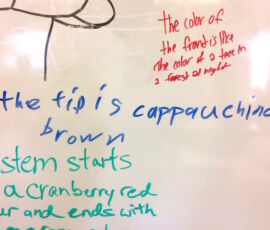 the color of
the front is like
the color of a tree in
a forest at night
the tip is cappauchino
brown
stem starts
a cranberry red
ur and ends with